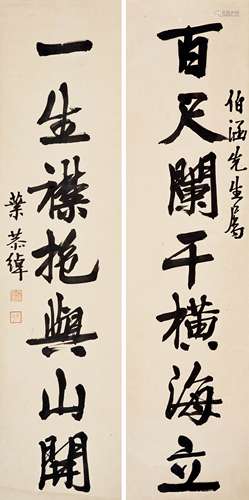 百尺闌干橫海立
伯涵先生屬
一生襟抱與山開
葉恭綽